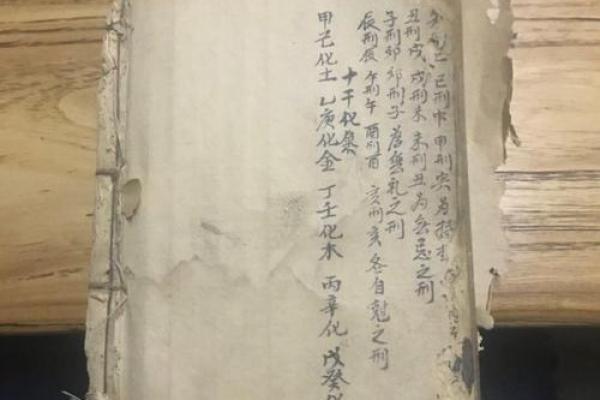 刑巳 巳刑申 申刑寅为
丑刑戌、戌刑未 未刑丑为无忌之刑
子刑卯 卯刑子 為無礼之刑
辰刑辰 午刑午 酉刑酉 亥刑亥 各自尅之刑
十干化集
甲己化土 乙庚化金 丁壬化木 丙辛化 戊癸化